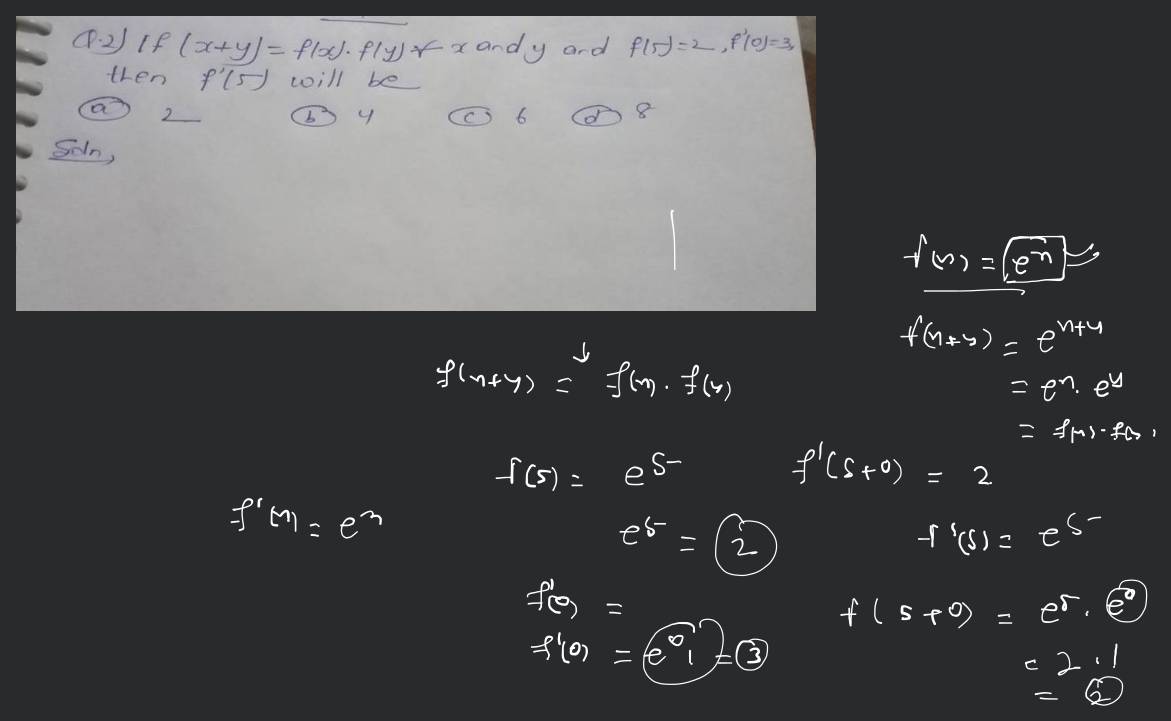 Q.2) If (x+y) = f(x). f(y) ∀ x and y and f(5)=2, f'(0)=3,
then f'(5) will be
(a) 2 (b) 4 (c) 6 (d) 8
Soln,
f(x) = e^x
f(x+y) = e^{x+y}
= e^x. e^y
= f(x). f(y).
f(x+y) = f(x). f(y)
f(5) = e^5
e^5 = 2
f'(x) = e^x
f'(0) =
f'(0) = e^0 1 = 3
f'(5+0) = 2
f'(5) = e^5
f(5+0) = e^5. e^0
= 2.1
= 2